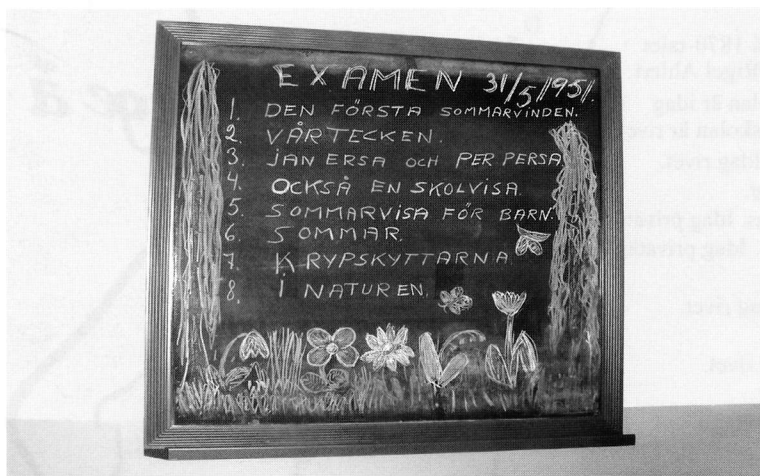 EXAMEN 31/5 1951.
1. DEN FÖRSTA SOMMARVINDEN.
2. VÅRTECKEN.
3. JAN ERSA OCH PER PERSA
4. OCKSÅ EN SKOLVISA.
5. SOMMARVISA FÖR BARN.
6. SOMMAR.
7. KRYPSKYTTARNA.
8. I NATUREN.